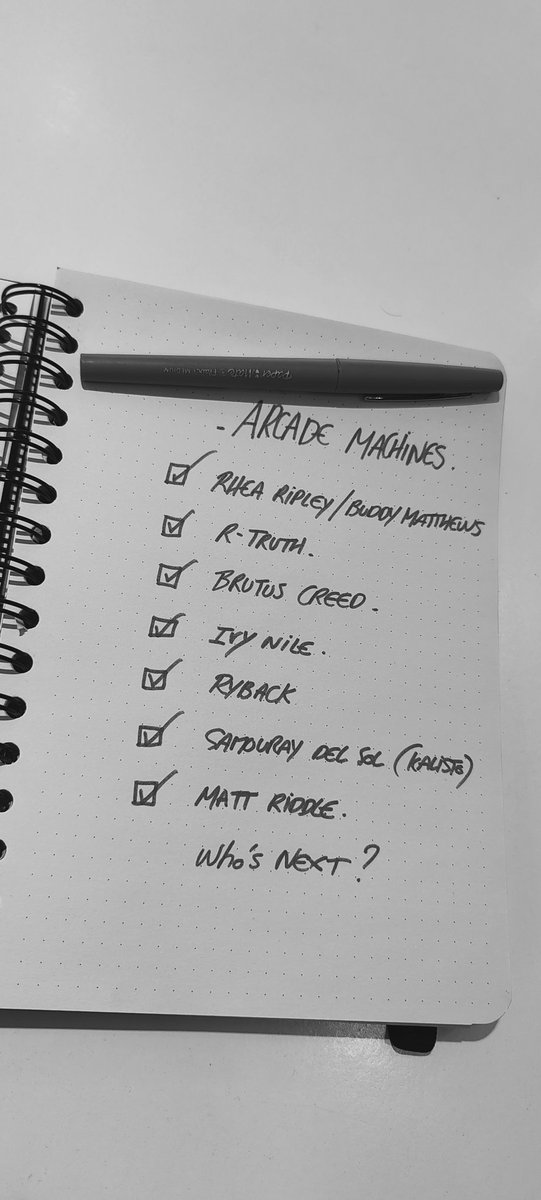 Paper Mate Flair MEDIUM
- ARCADE MACHINES.
RHEA RIPLEY/BUDDY MATTHEWS
R-TRUTH.
BRUTUS CREED.
IVY NILE.
RYBACK
SAMOURAY DEL SOL (KALISTO)
MATT RIDDLE.
WHO'S NEXT?